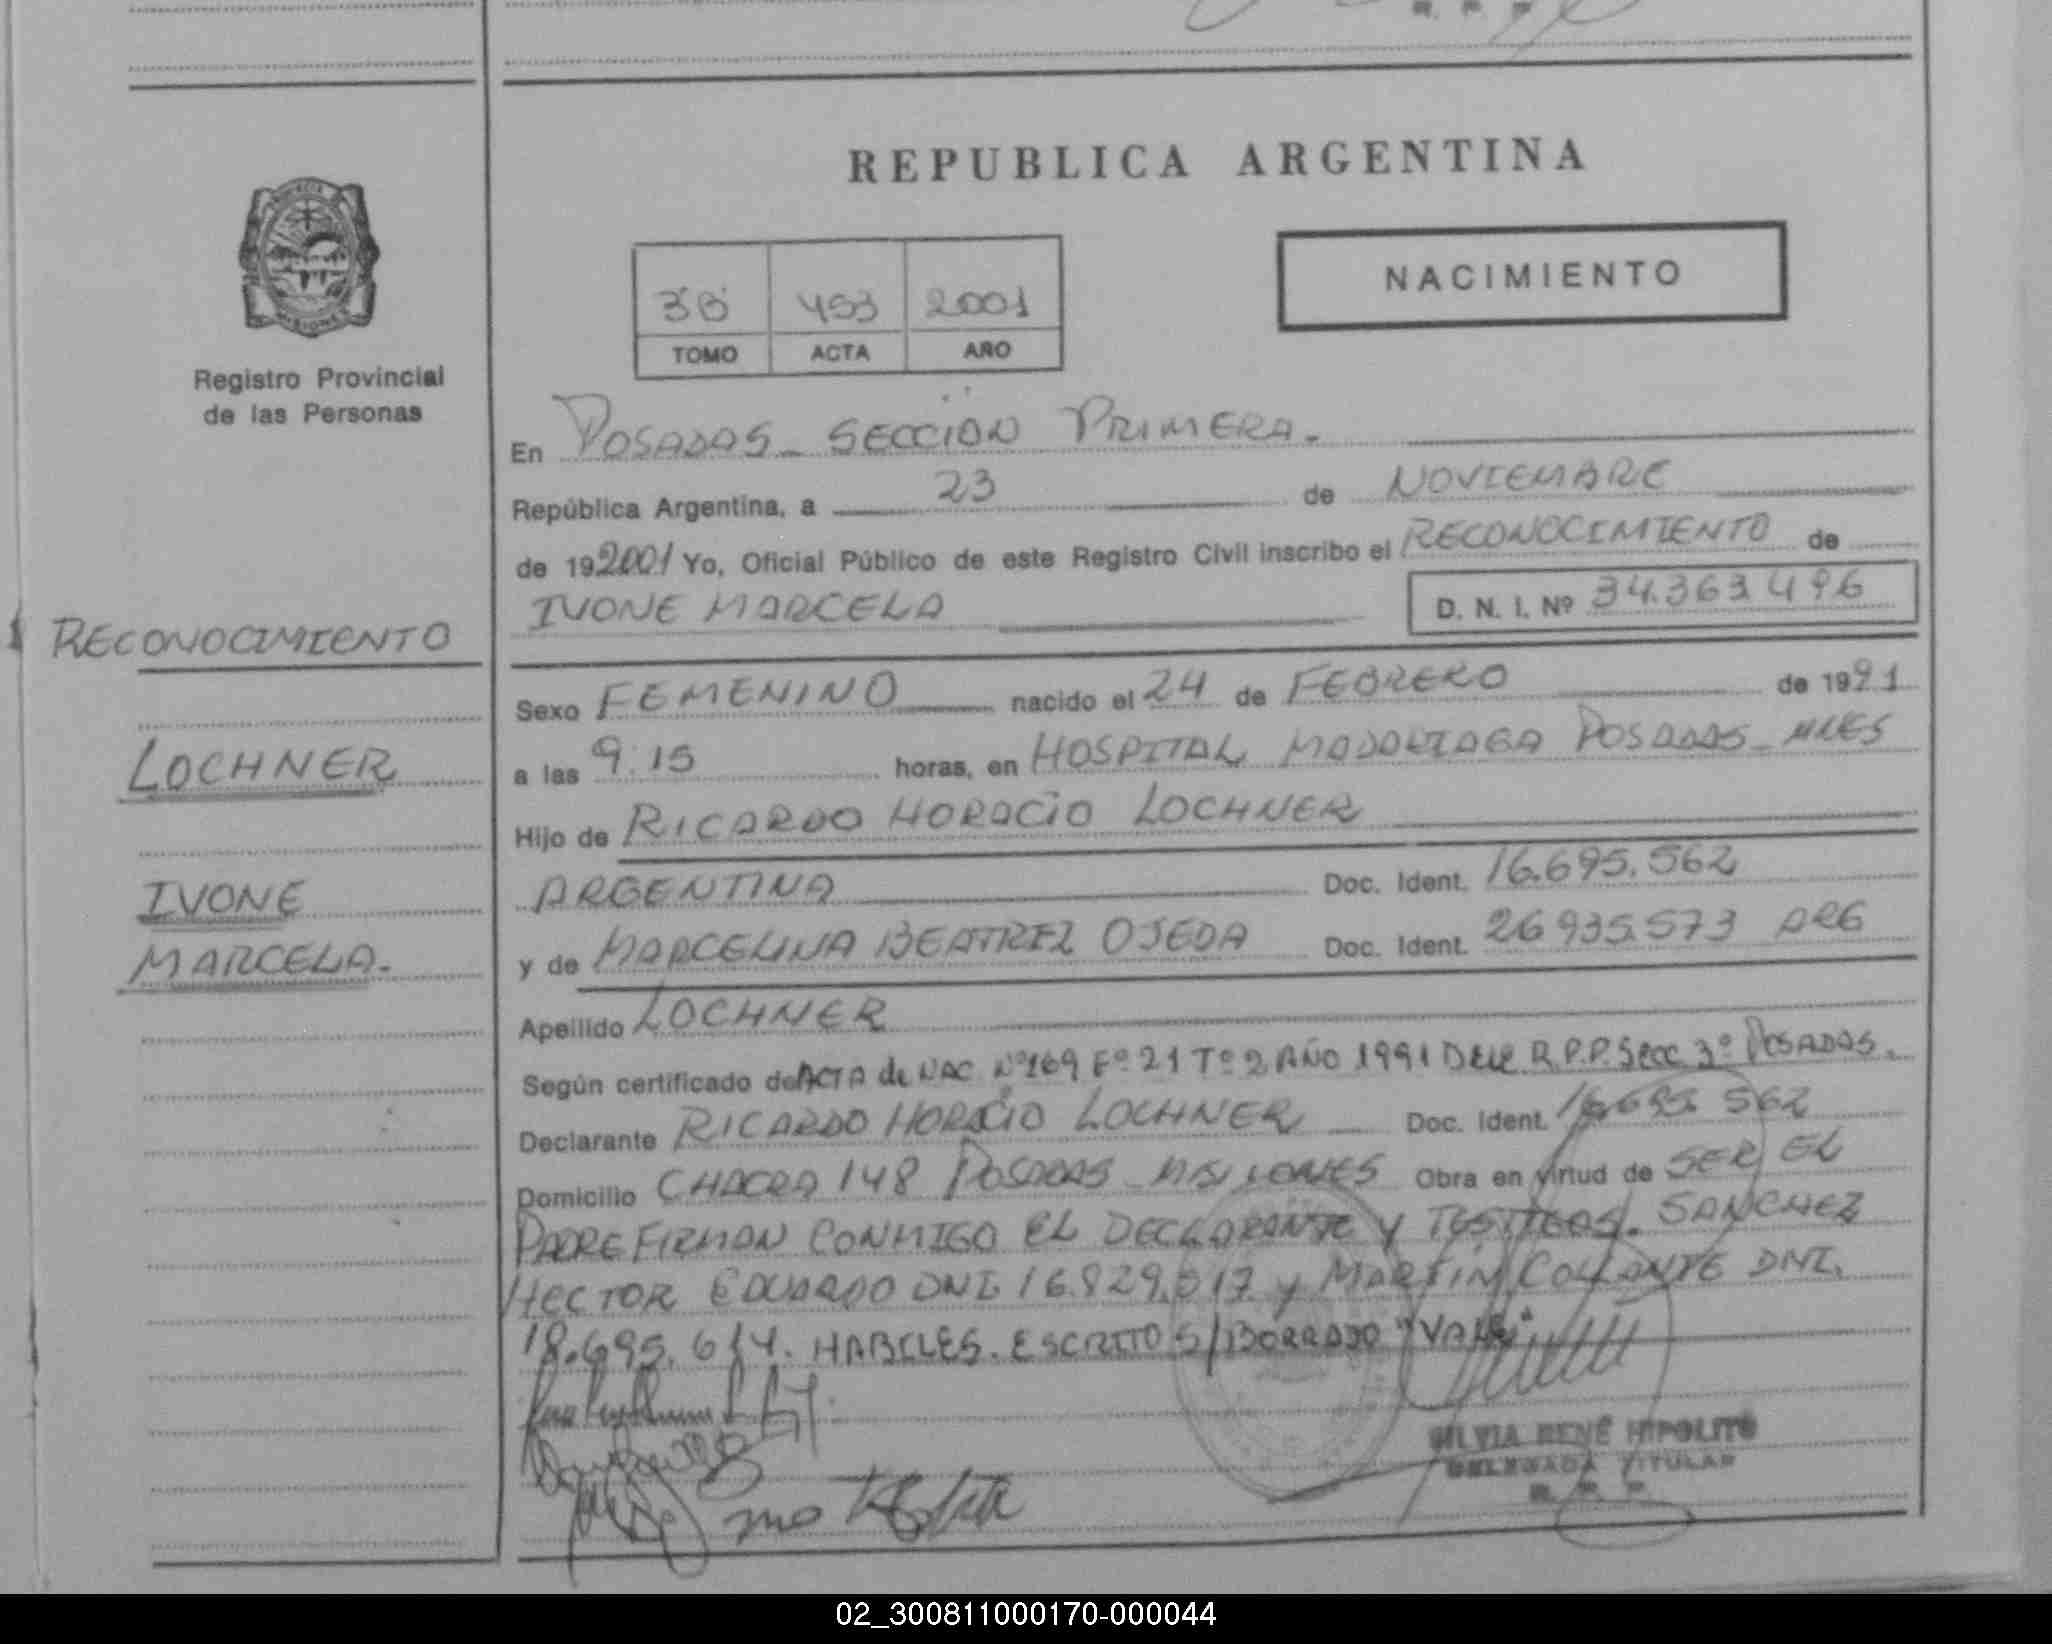 REPUBLICA ARGENTINA
NACIMIENTO
3B 493 2001
TOMO ACTA AÑO
Registro Provincial
de las Personas
En POSADAS - SECCION PRIMERA.
República Argentina, a 23 de NOVIEMBRE
de 192001 Yo, Oficial Público de este Registro Civil inscribo el RECONOCIMIENTO de
IVONE MARCELA D. N. I. Nº 34.363.496
RECONOCIMIENTO
LOCHNER
IVONE
MARCELA.
Sexo FEMENINO nacido el 24 de FEBRERO de 1991
a las 9:15 horas, en HOSPITAL MADARIAGA POSADAS - MNES
Hijo de RICARDO HORACIO LOCHNER
ARGENTINA Doc. Ident. 16.695.562
y de MARCELINA BEATRIZ OJEDA Doc. Ident. 26935.573 ARG
Apellido LOCHNER
Según certificado de ACTA de NAC. Nº169 Fº 21 Tº 2 AÑO 1991 DEL R.P.P. Secc 3º POSADAS.
Declarante RICARDO HORACIO LOCHNER Doc. Ident. 16.695.562
Domicilio CHACRA 148 POSADAS - MISIONES Obra en virtud de SER EL
PADRE FIRMAN CONMIGO EL DECLARANTE Y TESTIGOS. SANCHEZ
HECTOR EDUARDO DNI 16.829.017 y MARTIN COLLANTE DNI.
18.695.614. HABILES. ESCRITO S/BORRADO "VALE"
SILVIA RENÉ HIPOLITO
DELEGADA TITULAR
R. P. P.
02_300811000170-000044